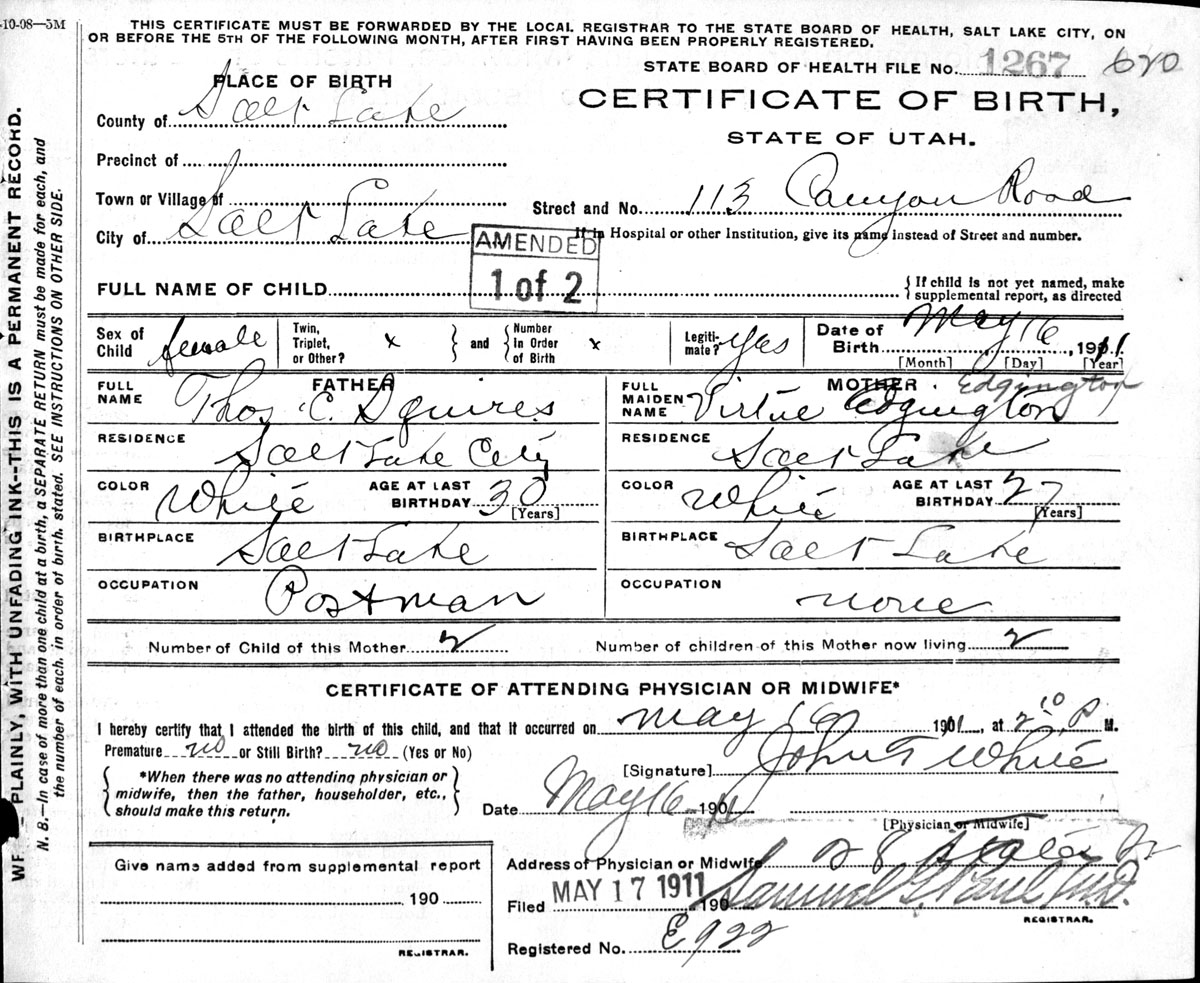 -10-08—5M
THIS CERTIFICATE MUST BE FORWARDED BY THE LOCAL REGISTRAR TO THE STATE BOARD OF HEALTH, SALT LAKE CITY, ON
OR BEFORE THE 5TH OF THE FOLLOWING MONTH, AFTER FIRST HAVING BEEN PROPERLY REGISTERED.
STATE BOARD OF HEALTH FILE No. 1267 620
PLACE OF BIRTH
CERTIFICATE OF BIRTH,
STATE OF UTAH.
County of Salt Lake
Precinct of
Town or Village of
Street and No. 113 Canyon Road
City of Salt Lake
If in Hospital or other Institution, give its name instead of Street and number.
AMENDED
1 of 2
FULL NAME OF CHILD
{ If child is not yet named, make
supplemental report, as directed
Sex of Child female
Twin, Triplet, or Other? x } and { Number In Order of Birth x
Legiti- mate? Yes
Date of Birth May 16, 1911
[Month] [Day] [Year]
FATHER
FULL NAME Thos C. Squires
RESIDENCE Salt Lake City
COLOR White AGE AT LAST BIRTHDAY 30
[Years]
BIRTHPLACE Salt Lake
OCCUPATION Postman
MOTHER Edgington
FULL MAIDEN NAME Virtue Edgington
RESIDENCE Salt Lake
COLOR White AGE AT LAST BIRTHDAY 27
[Years]
BIRTHPLACE Salt Lake
OCCUPATION none
Number of Child of this Mother 2
Number of children of this Mother now living 2
CERTIFICATE OF ATTENDING PHYSICIAN OR MIDWIFE*
I hereby certify that I attended the birth of this child, and that it occurred on May 16 1911, at 2 10 P M.
Premature no or Still Birth? no (Yes or No)
{ *When there was no attending physician or
midwife, then the father, householder, etc.,
should make this return. }
[Signature] John White
Date May 16 1911
[Physician or Midwife]
Address of Physician or Midwife
Give name added from supplemental report
190
REGISTRAR.
Filed MAY 17 1911 190 Samuel G. Paul M.D.
REGISTRAR.
Registered No. E922
WRITE PLAINLY, WITH UNFADING INK--THIS IS A PERMANENT RECORD.
N. B.—In case of more than one child at a birth, a SEPARATE RETURN must be made for each, and
the number of each, in order of birth, stated. SEE INSTRUCTIONS ON OTHER SIDE.